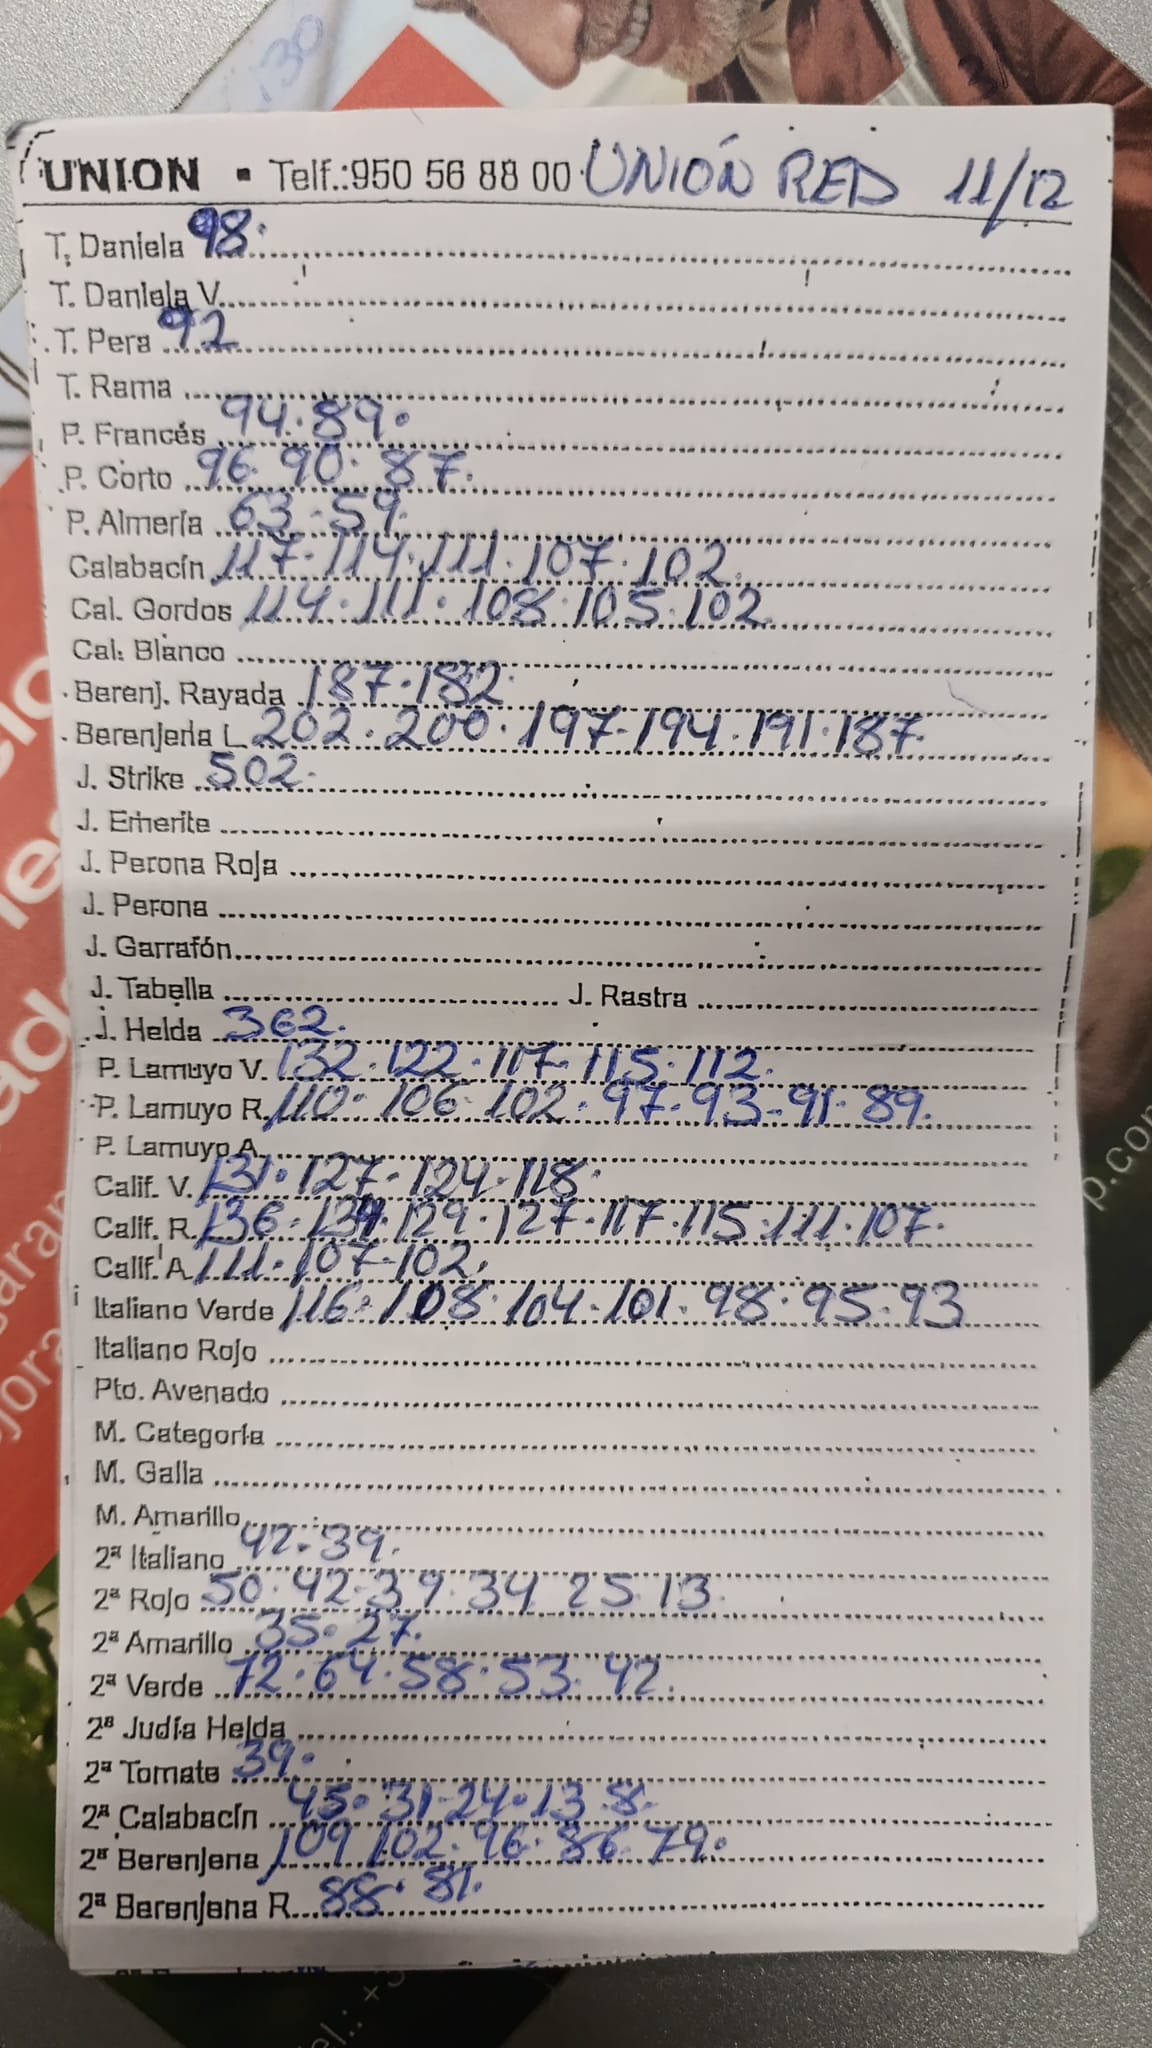 UNION • Telf.:950 56 88 00 UNIÓN RED 11/12
T. Daniela 98.
T. Daniela V.
T. Pera 92
T. Rama
P. Francés 94.89.
P. Corto 96.90.87.
P. Almería 63.59.
Calabacín 117.114.111.107.102.
Cal. Gordos 114.111.108.105.102.
Cal. Blanco
Berenj. Rayada 187.182.
Berenjena L. 202.200.197.194.191.187.
J. Strike 502.
J. Emerite
J. Perona Roja
J. Perona
J. Garrafón
J. Tabella J. Rastra
J. Helda 362.
P. Lamuyo V. 132.122.117.115.112.
P. Lamuyo R. 110.106.102.97.93.91.89.
P. Lamuyo A.
Calif. V. 131.127.124.118.
Calif. R. 136. 129.127.117.115.111.107.
Calif. A. 111.107.102.
Italiano Verde 116.108.104.101.98.95.93
Italiano Rojo
Pto. Avenado
M. Categoría
M. Galia
M. Amarillo
2ª Italiano 42.39.
2ª Rojo 50.42.39.34 25 13.
2ª Amarillo 35.27.
2ª Verde 72.64.58.53.42.
2ª Judía Helda
2ª Tomate 39.
2ª Calabacín 45.31.24.13.8.
2ª Berenjena 109 102.96.86.79.
2ª Berenjena R. 88.81.